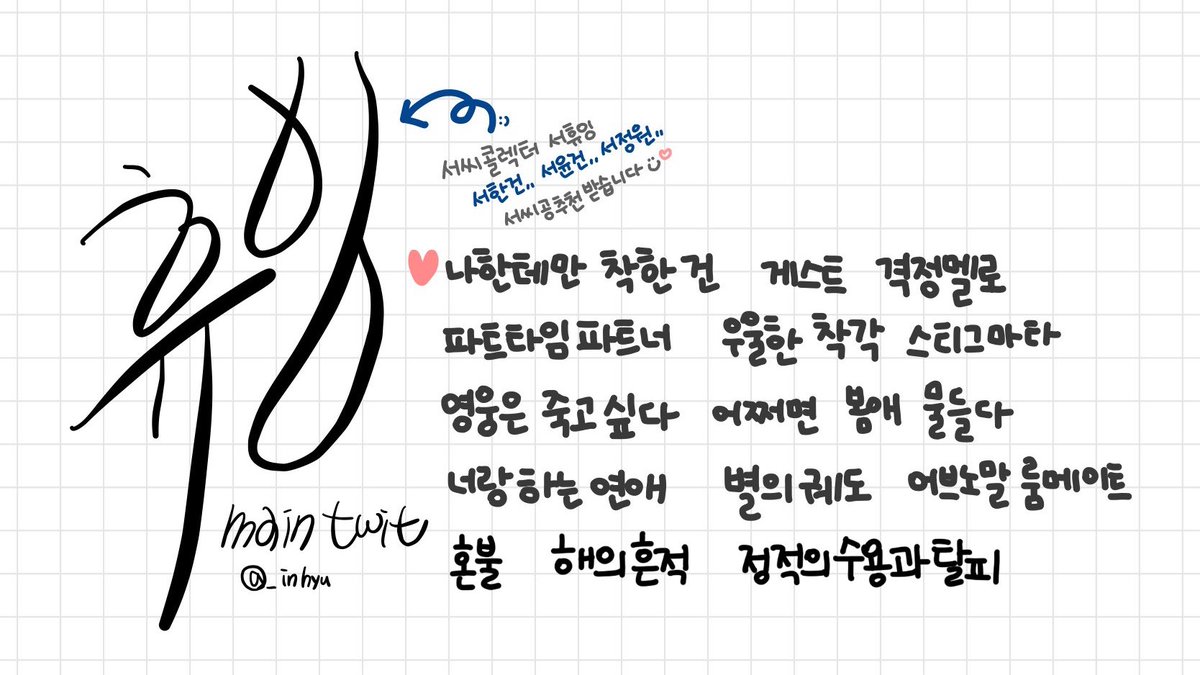 휴잉
서씨콜렉터 서휴잉
서한건.. 서윤건.. 서정원..
서씨공추천 받습니다
나한테만 착한 건 게스트 격정멜로
파트타임 파트너 우울한 착각 스티그마타
영웅은 죽고 싶다 어쩌면 봄애 물들다
너랑 하는 연애 별의 궤도 어브노말 룸메이트
혼불 해의 흔적 정적의 수용과 탈피
main twit
@_inhyu